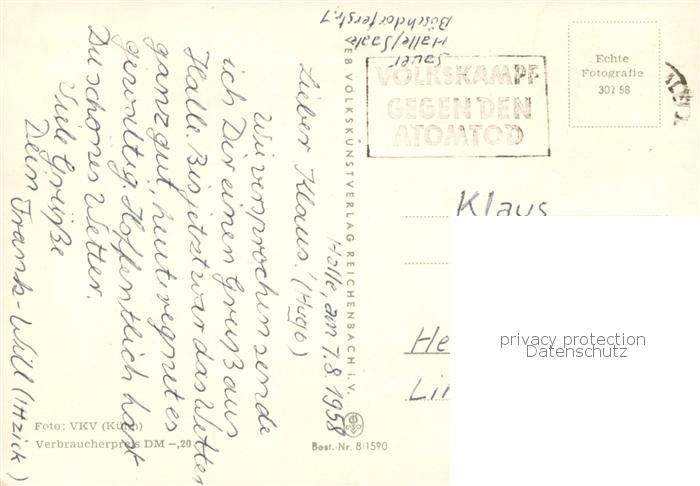 Sauer
Halle/Saale
Böschdorferstr. 1
VOLKSKAMPF
GEGEN DEN
ATOMTOD
Echte
Fotografie
302 58
Halle, am 7.8.1958
Lieber Klaus! (Hugo)
Wie versprochen sende
ich Dir einen Gruß aus
Halle. Bis jetzt war das Wetter
ganz gut, heut regnet es
gewaltig. Hoffentlich hast
Du schönes Wetter.
Viele Grüße
Dein Frank-Will (Itzick)
VEB VOLKSKUNSTVERLAG REICHENBACH i. V.
Klaus
He
Lin
privacy protection
Datenschutz
Foto: VKV (Kühn)
Verbraucherpreis DM -,20
Best.-Nr. 8/1590